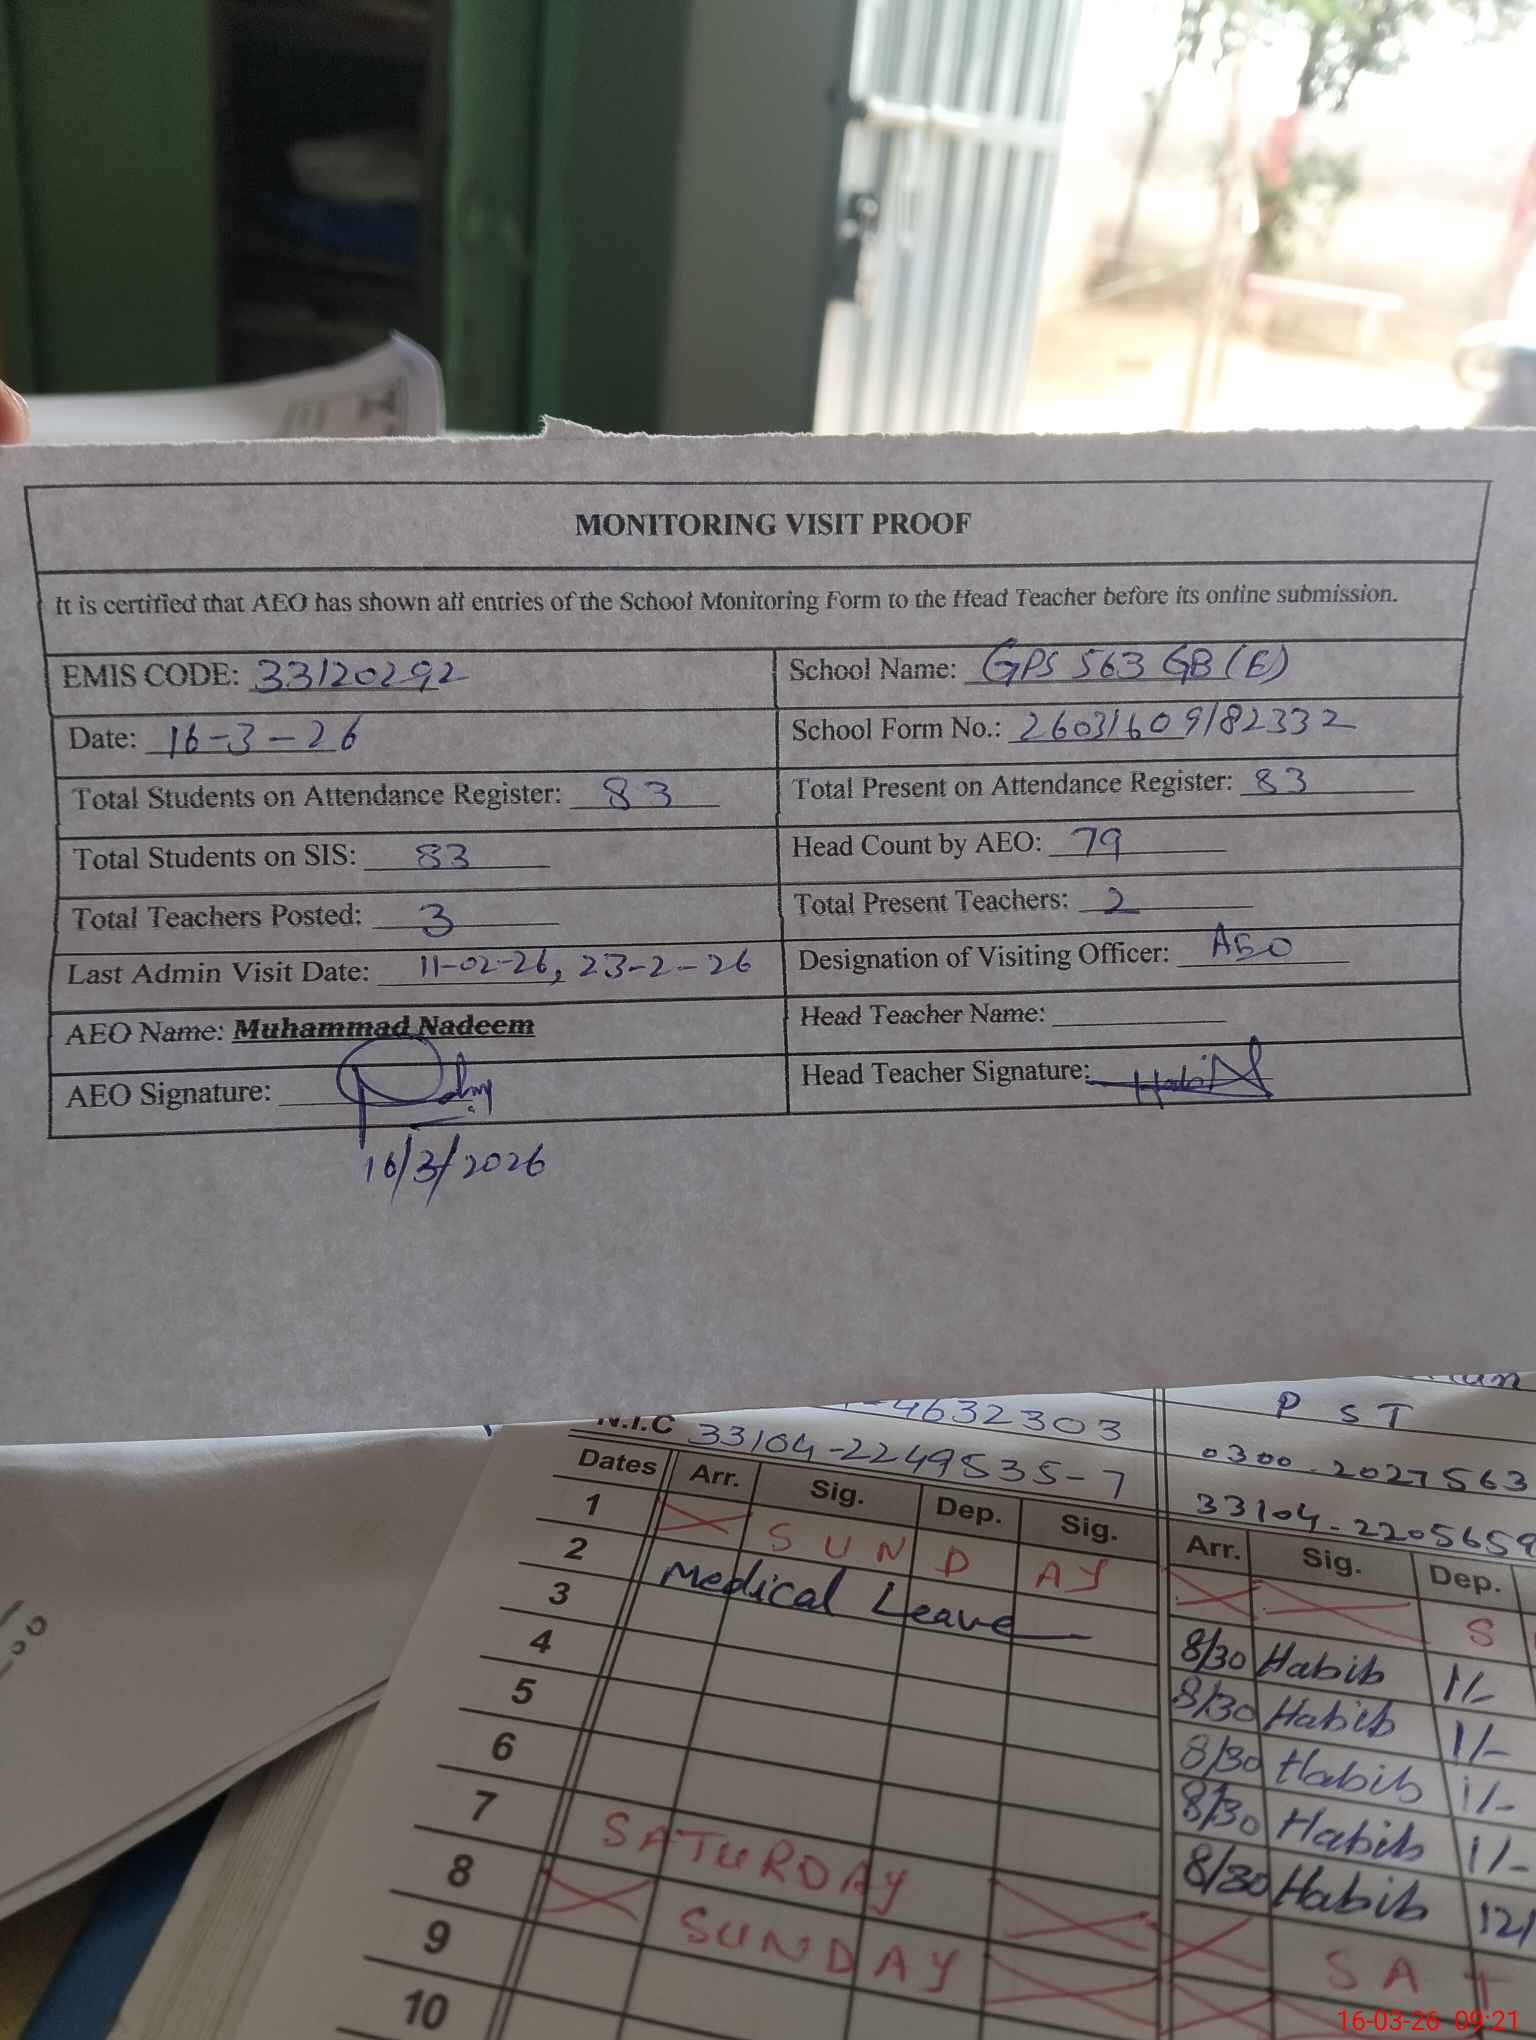 MONITORING VISIT PROOF
It is certified that AEO has shown all entries of the School Monitoring Form to the Head Teacher before its online submission.
EMIS CODE: 33120292 School Name: GPS 563 GB (E)
Date: 16-3-26 School Form No.: 26031609182332
Total Students on Attendance Register: 83 Total Present on Attendance Register: 83
Total Students on SIS: 83 Head Count by AEO: 79
Total Teachers Posted: 3 Total Present Teachers: 2
Last Admin Visit Date: 11-02-26, 23-2-26 Designation of Visiting Officer: AEO
AEO Name: Muhammad Nadeem Head Teacher Name:
AEO Signature: Head Teacher Signature: Habib
16/3/2026
4632303 P S T
N.I.C 33104-2249535-7 0300-2027563
33104-2205659
Dates Arr. Sig. Dep. Sig. Arr. Sig. Dep.
1 S U N D AY S
2 Medical Leave 8/30 Habib 1/-
3 8/30 Habib 1/-
4 8/30 Habib 1/-
5 8/30 Habib 1/-
6 8/30 Habib 12/
7 SATURDAY S A T
8 SUNDAY
9
10
16-03-26 09:21